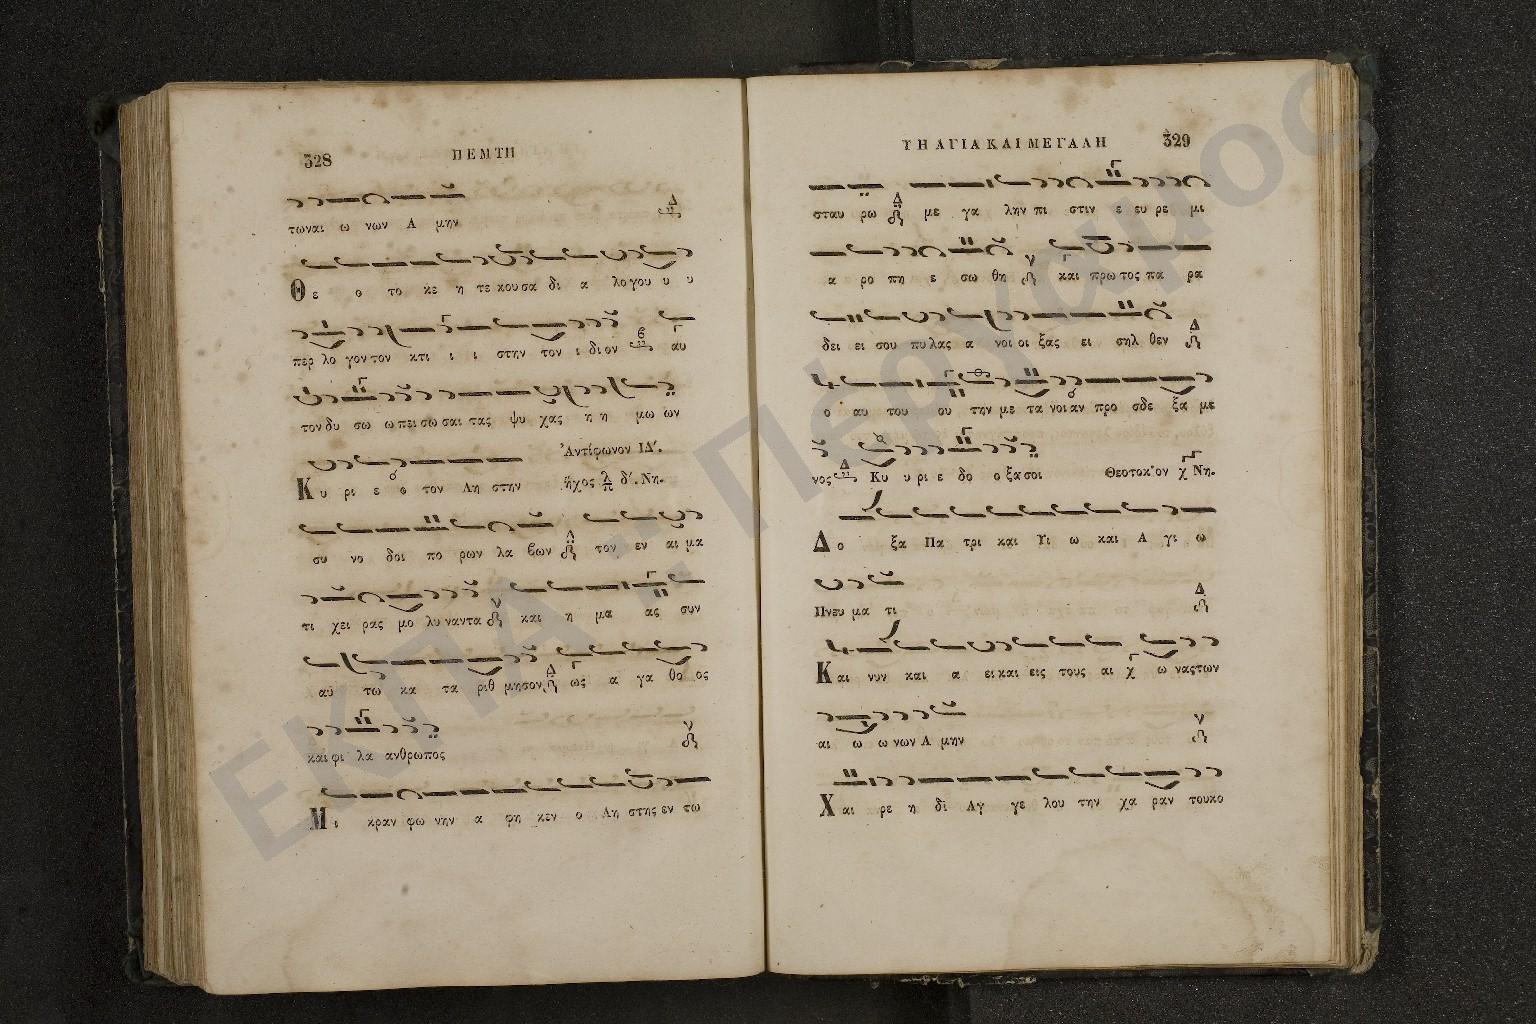 328 ΠΕΜΤΗ
τωναι ω νων Α μην
Θε ο το κε η τε κου σα δι α λο γου υ υ
περ λο γον τον κτι ι ι στην τον ι δι ον αυ
τον δυ σω ω πει σω σαι τας ψυ χας η η μω ων
Ἀντίφωνον ΙΔ΄.
Κυ ρι ε ο τον Λη στην ἦχος λ π δ΄. Νη.
συ νο δοι πο ρων λα βων τον εν αι μα
τι χει ρας μο λυ ναντα και η μα ας συν
αυ τω κα τα ριθ μησον ως α γα θο ος
και φι λα ανθρωπος
Μι κραν φω νην α φη κεν ο Λη στης εν τω
ΤΗ ΑΓΙΑ ΚΑΙ ΜΕΓΑΛΗ 329
σταυ ρω με γα λην πι στιν ε ευ ρε μι
α ρο πη ε σω θη και πρω τος πα ρα
δει ει σου πυ λας α νοι οι ξας ει σηλ θεν
ο αυ του ου την με τα νοι αν προ σδε ξα με
νος Κυ υ ρι ε δο ο ξα σοι Θεοτοκ'ον χ Νη.
Δο ξα Πα τρι και Υι ω και Α γι ω
Πνευ μα τι
Και νυν και α ει και εις τους αι χ ω νας των
αι ω ω νων Α μην
Χαι ρε η δι Αγ γε λου την χα ραν του κο
ΕΚΠΑ - Πέργαμος